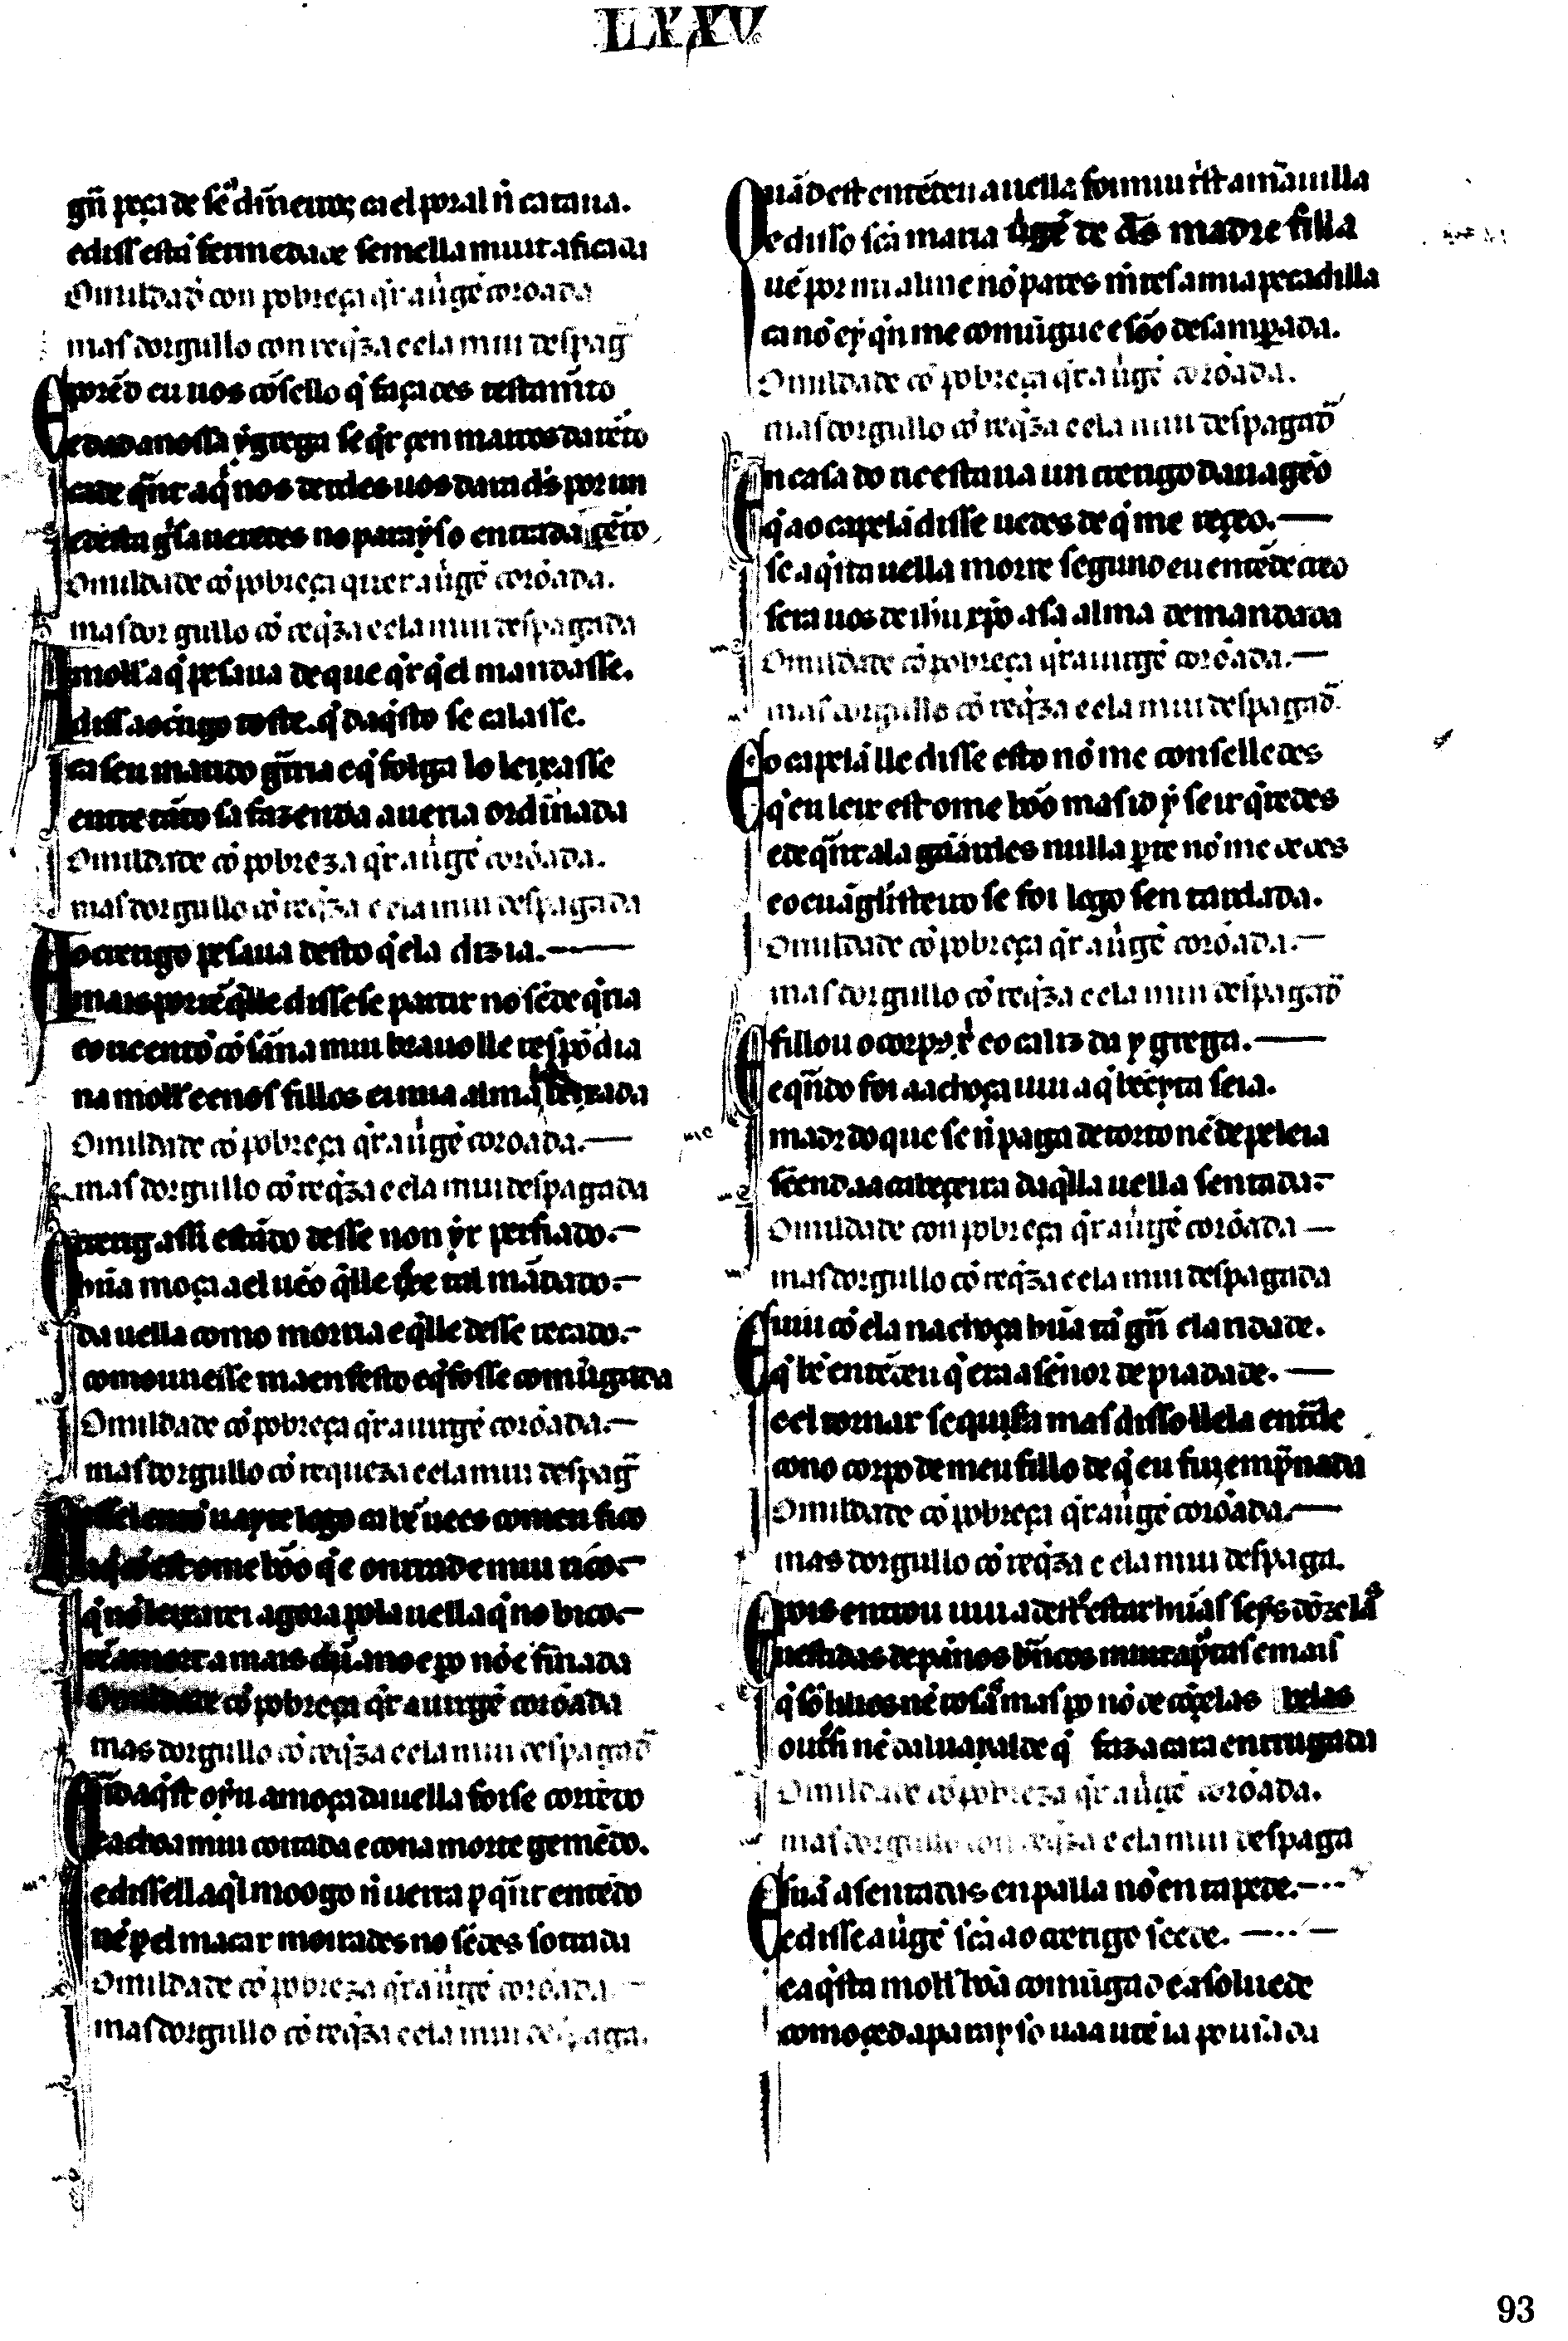 LXXV
gñ peça de seꝰ din̄eiros ca el por al ñ cataua.
e diss esta fermedade semella muit aficada
Omildad̄ con pobreça q̇r a ũgẽ coroada
mas dorgullo con req̇za e ela mui despag̃
E porẽd eu uos cõsello q̇ façades testam̃to
e dad a nossa ygreja se q̇r çen marcos da rẽto
ca de q̃nt aq̇ nos derdes uos dara ds̃ por un
e desta g̃sa aueredes no parayso entrada çẽto
Omildade cõ pobreça quer a ũgẽ coroada.
mas dorgullo cõ req̇za e ela mui despagada
A moll̃ a q̇ pesaua de que q̇r q̇ el mandasse.
diss ao c̃rigo toste. q̇ daq̇sto se calasse.
ca seu marido g̃ria e q̇ folga lo leixasse
entre tãto sa fazenda aueria ordin̄ada
Omildade cõ pobreza q̇r a ũgẽ coroada.
mas dorgullo cõ req̇za e ela mui despagada
Ao crerigo pesaua desto q̇ ela dizia.
mais por rẽ q̇ lle dissesse partir nõ sẽde q̇ria
e o ric entõ cõ sãna mui brauo lle respõdia
na moll̃ e enos fillos en mia alma leixada
Omildade cõ pobreça q̇r a ũgẽ coroada.
mas dorgullo cõ req̇za e ela mui despagada
O crerig assi estãdo desse non yr perfiado.
hũa moça a el uẽo q̇ lle trouxe tal mãdado.
da uella como morria e q̇ lle desse recado.
como uuesse maenfesto e q̇ fosse comũgada
Omildade cõ pobreça q̇r a uirgẽ coroada.
mas dorgullo cõ requeza e ela mui despag̃
Diss el entõ uayte logo ca bẽ uees com eu fico
aq̇ cõ est ome bõo q̇ é onrrad e mui rico.
q̇ nõ leixarei agora pola uella q̇ no bico.
ten a mort a mais dũ ano e ꝑo nõ é fĩnada
Omildade cõ pobreça q̇r a uirgẽ coroada
mas dorgullo cõ req̇za e ela mui despagad̄
Q̃nd aq̇st oyu a moça da uella foi se corrẽdo
e achoa mui coitada e cona morte gemẽdo.
e disse ll aq̇l moogo ñ uerra ꝑ q̃nt entẽdo
nẽ ꝑ el macar moirades no sẽdes soterrada
Omildade cõ pobreza q̇r a ũgẽ coroada
mas dorgullo cõ req̇za e ela mui despaga.
Quãd est entẽdeu a uella foi mui trist a mãrauilla
e disso scã maria ũgẽ de ds̃ madre filla
uẽ por mi alm e nõ pares mẽtes a mia pecadilla
ca nõ ey q̇n me comũgue e sõo desamꝑada.
Omildade cõ pobreça q̇r a ũgẽ coroada.
mas dorgullo cõ req̇za e ela mui despagad̄
En casa do ric estaua un crerigo dauãgeõ
q̇ ao capelã disse uedes de q̇ me reçeo.
se aq̇sta uella morre segund eu entẽd e creo
sera uos de ih̃u xp̃o a sa alma demandada
Omildade cõ pobreça q̇r a uirgẽ coroada.
mas dorgullo cõ req̇za e ela mui despagad̄.
E o capelã lle disse esto nõ me conselledes
q̇ eu leix est ome bõo mas id y se ir q̇redes
e de q̃nt ala gãardes nulla ꝑte nõ me dedes
e o euãglisteiro se foi logo sen tardada.
Omildade cõ pobreça q̇r a ũgẽ coroada.
mas dorgullo cõ req̇za e ela mui despagad̄
E fillou o corpo xr̃ e o caliz da ygreja.
e q̃ndo foi aa choça uiu a q̇ bẽeyta seia.
madr do que se ñ paga de torto nẽ de peleia
seẽnd aa cabeçeira daq̇lla uella sentada.
Omildade con pobreça q̇r a ũgẽ coroada
mas dorgullo cõ req̇za e ela mui despagada
E uiu cõ ela na choça hũa tã gñ claridade.
q̇ bẽ entẽdeu q̇ era a sẽnor de piadade.
e el tornar se quisera mas disso ll ela entrade
cono corpo de meu fillo de q̇ eu fui empn̄ada
Omildade cõ pobreça q̇r a ũgẽ coroada.
mas dorgullo cõ req̇za e ela mui despaga.
E pois entrou uiu a destr̃ estar hũas seys dõzelas̃
uestidas de panos brãcos muit apostas e mais
q̇ sõ lirios nẽ rosas mas ꝑo nõ de cõçelas belas
outrossi nẽ daluayalde q̇ faz a cara enrrugada
Omildade cõ pobreza q̇r a ũgẽ coroada.
mas dorgullo con req̇za e ela mui despaga
E siiã asentadas en palla nõ en tapede.
e disse a ũgẽ scã ao crerigo seede.
e aq̇sta moll̃ bõa comũgad e asoluede
como çed a parayso uaa u tẽ ia pousada
93